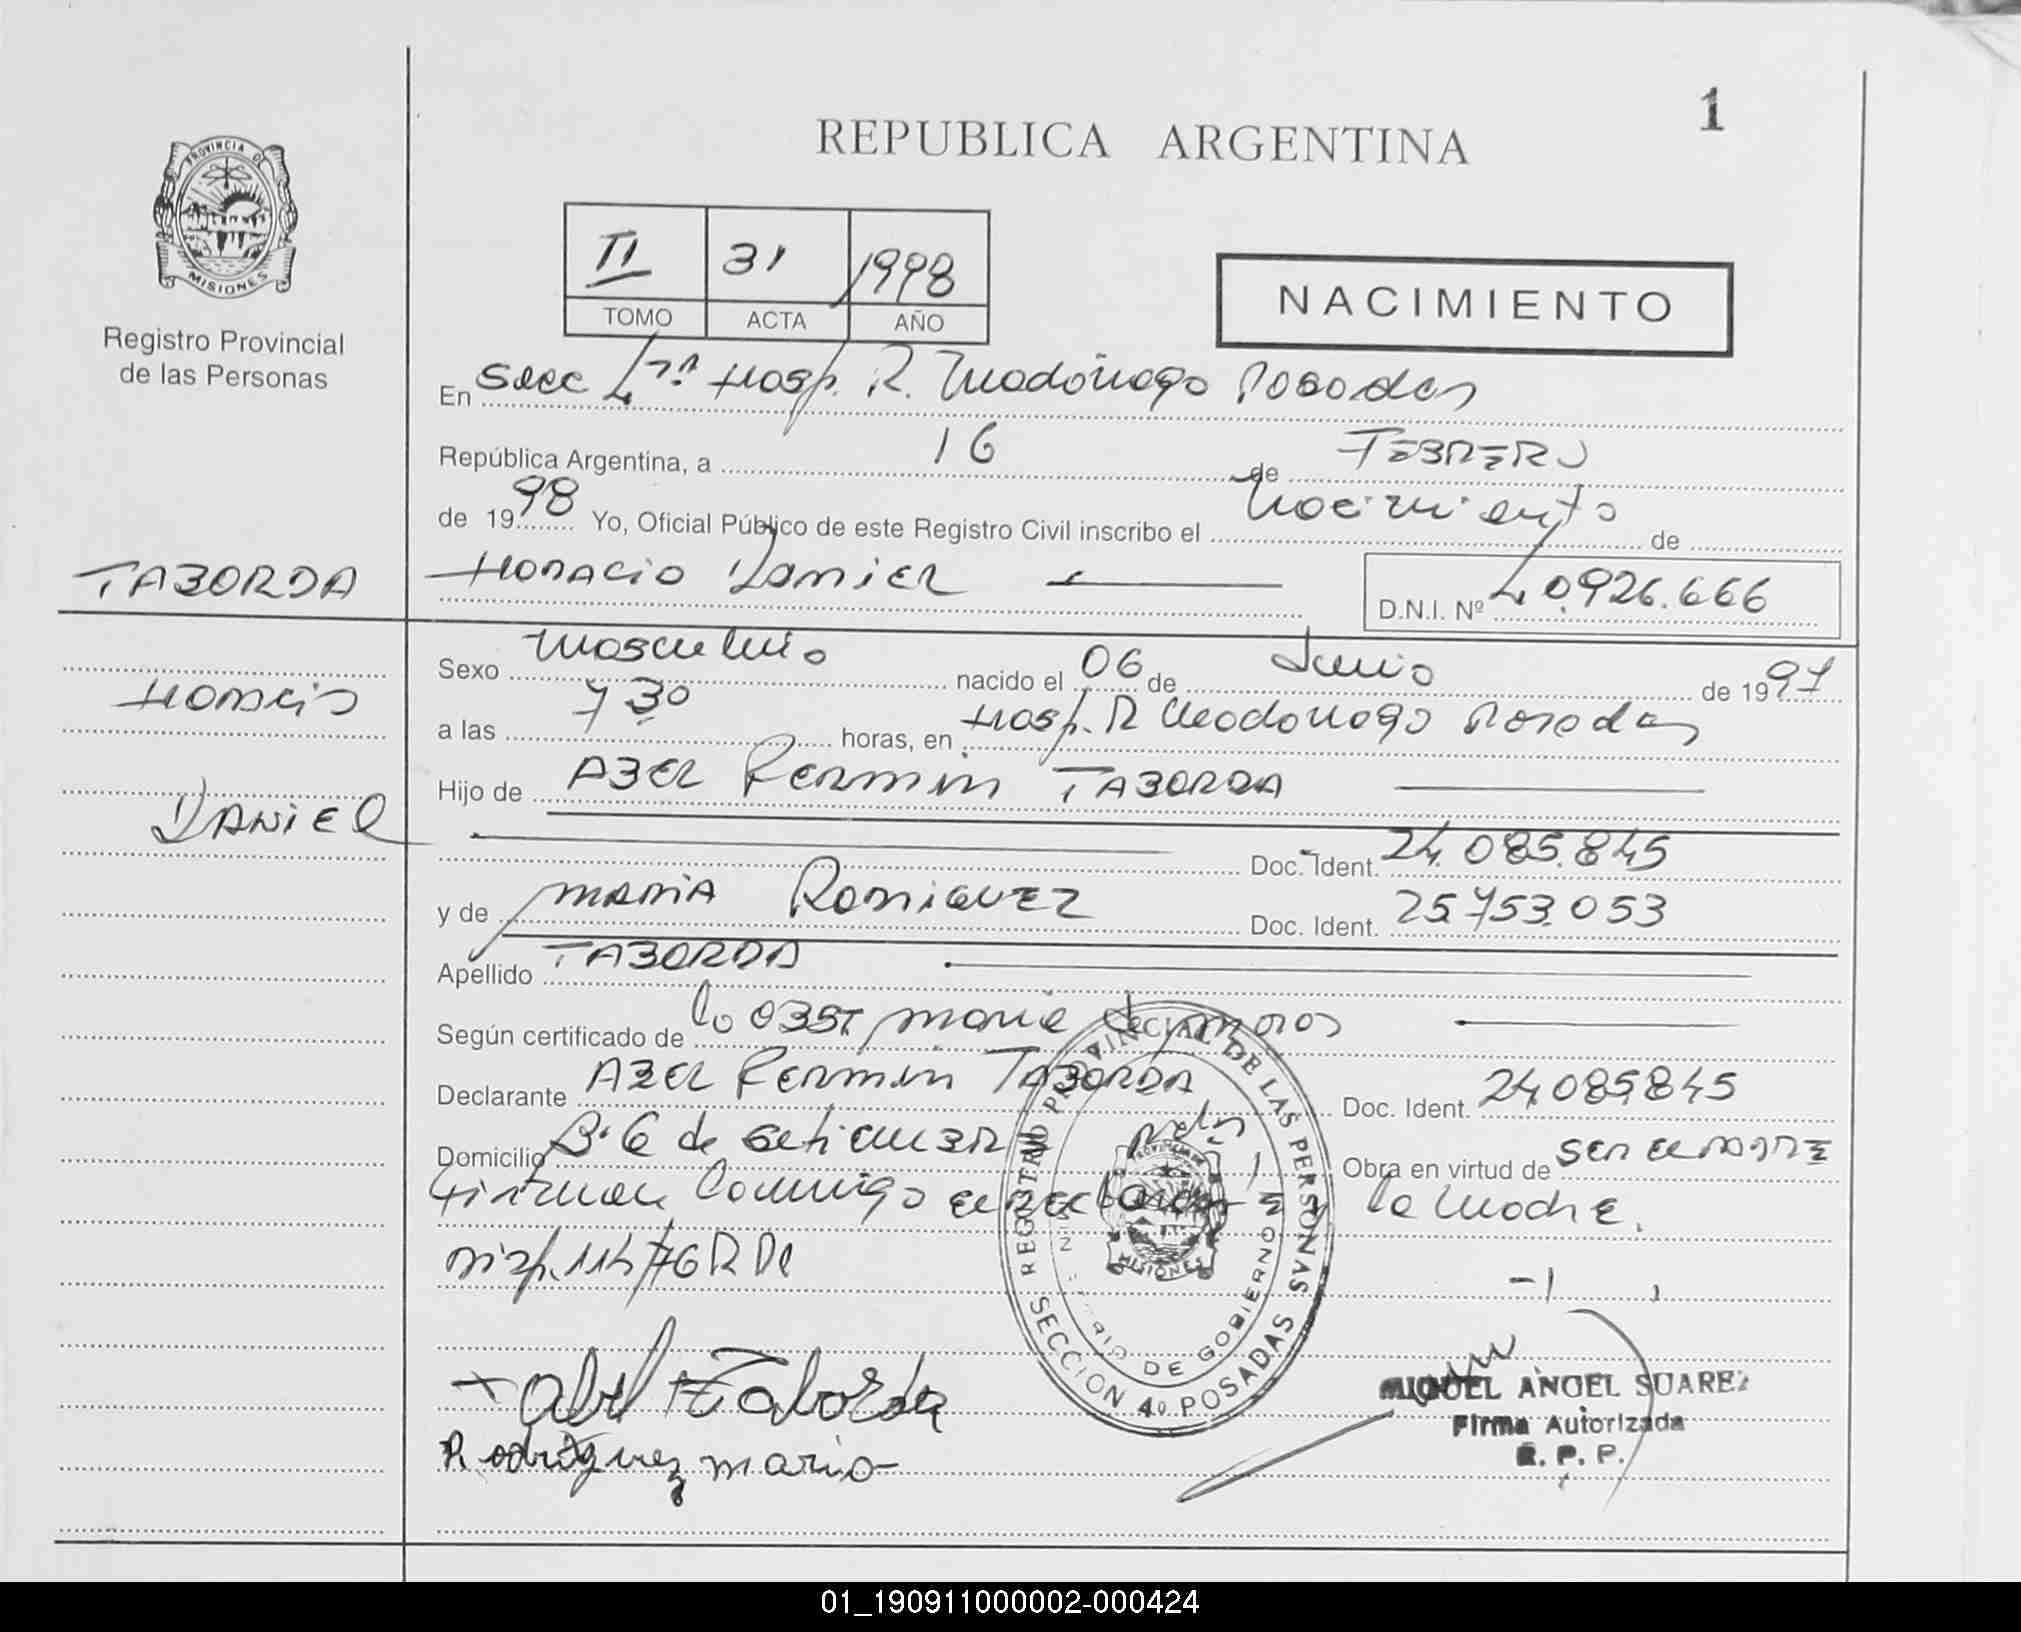 1
REPUBLICA ARGENTINA
PROVINCIA DE
MISIONES
Registro Provincial
de las Personas
II 31 1998
TOMO ACTA AÑO
NACIMIENTO
En Secc 4ta Hosp. R. Madariaga Posadas
República Argentina, a 16 de FEBRERO
de 1998 Yo, Oficial Público de este Registro Civil inscribo el Nacimiento de
TABORDA
HORACIO DANIEL
D.N.I. Nº 40.926.666
HORACIO
DANIEL
Sexo Masculino nacido el 06 de Junio de 1997
a las 7 30 horas, en Hosp. R Madariaga Posadas
Hijo de ABEL FERMIN TABORDA
Doc. Ident. 24.085.845
y de MARIA RODRIGUEZ Doc. Ident. 25.753.053
Apellido TABORDA
Según certificado de la OBST. maria
Declarante ABEL FERMIN TABORDA Doc. Ident. 24.085.845
Domicilio Bº 6 de setiembre Obra en virtud de SER EL PADRE
Firman Conmigo el declarante y la Madre.
REGISTRO PROVINCIAL DE LAS PERSONAS
SECCION 4º POSADAS
DE GOBIERNO
MISIONES
Abel F Taborda
Rodriguez maria
MIGUEL ANGEL SUAREZ
Firma Autorizada
R. P. P.
01_190911000002-000424